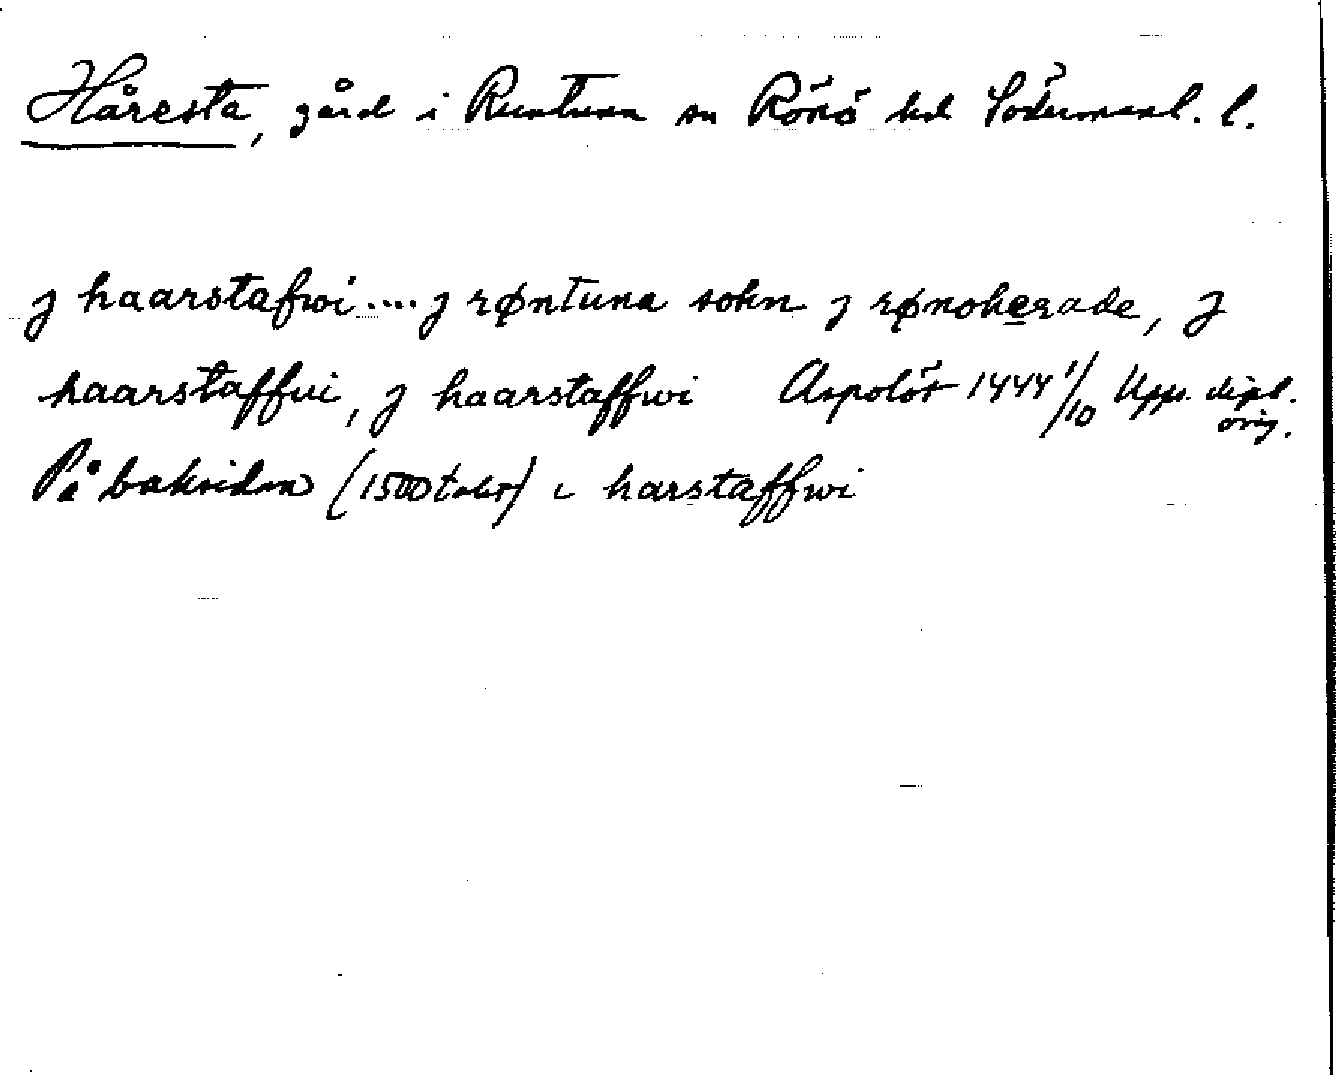 Håresta, gård i Runtuna sn Rönö hd Södermanl. l.
j haarstafwi .... j røntuna sokn j rønoherade, j
haarstaffui, j haarstaffwi Aspolöt 1444 1/10 Upps. dipl. orig.
På baksidan (1500talet) i harstaffwi